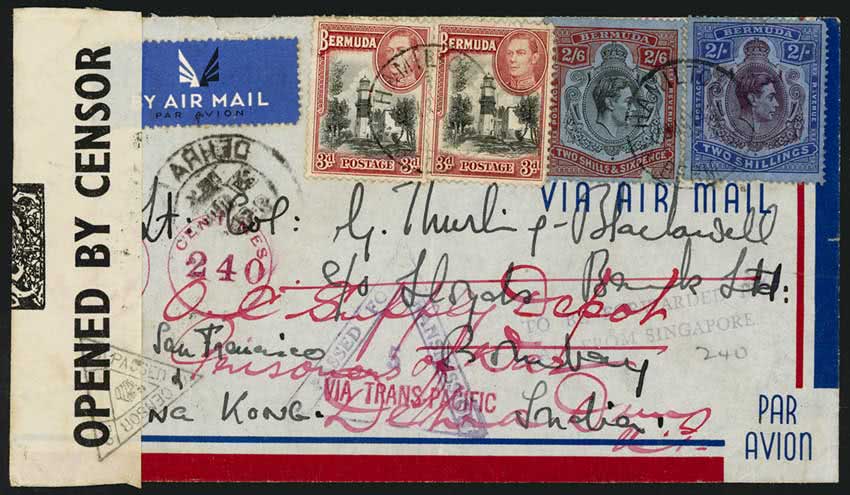 OPENED BY CENSOR
BY AIR MAIL
PAR AVION
BERMUDA
3d POSTAGE 3d
BERMUDA
3d POSTAGE 3d
BERMUDA
2/6 2/6
POSTAGE
REVENUE
TWO SHILLS & SIXPENCE
BERMUDA
2/- 2/-
POSTAGE
REVENUE
TWO SHILLINGS
HAMILTON
DEHRA
VIA AIR MAIL
Lt: Col: G. Thurling-Blackwell
240
c/o Lloyds Bank Ltd:
O C Supply Depot
TO BE FORWARDED
FROM SINGAPORE
240
PASSED FOR TRANSMISSION
San Francisco
Bombay
Prisoners of War
VIA TRANS-PACIFIC
PASSED
CENSOR
Hong Kong.
India.
Dehra Dun
PAR
AVION